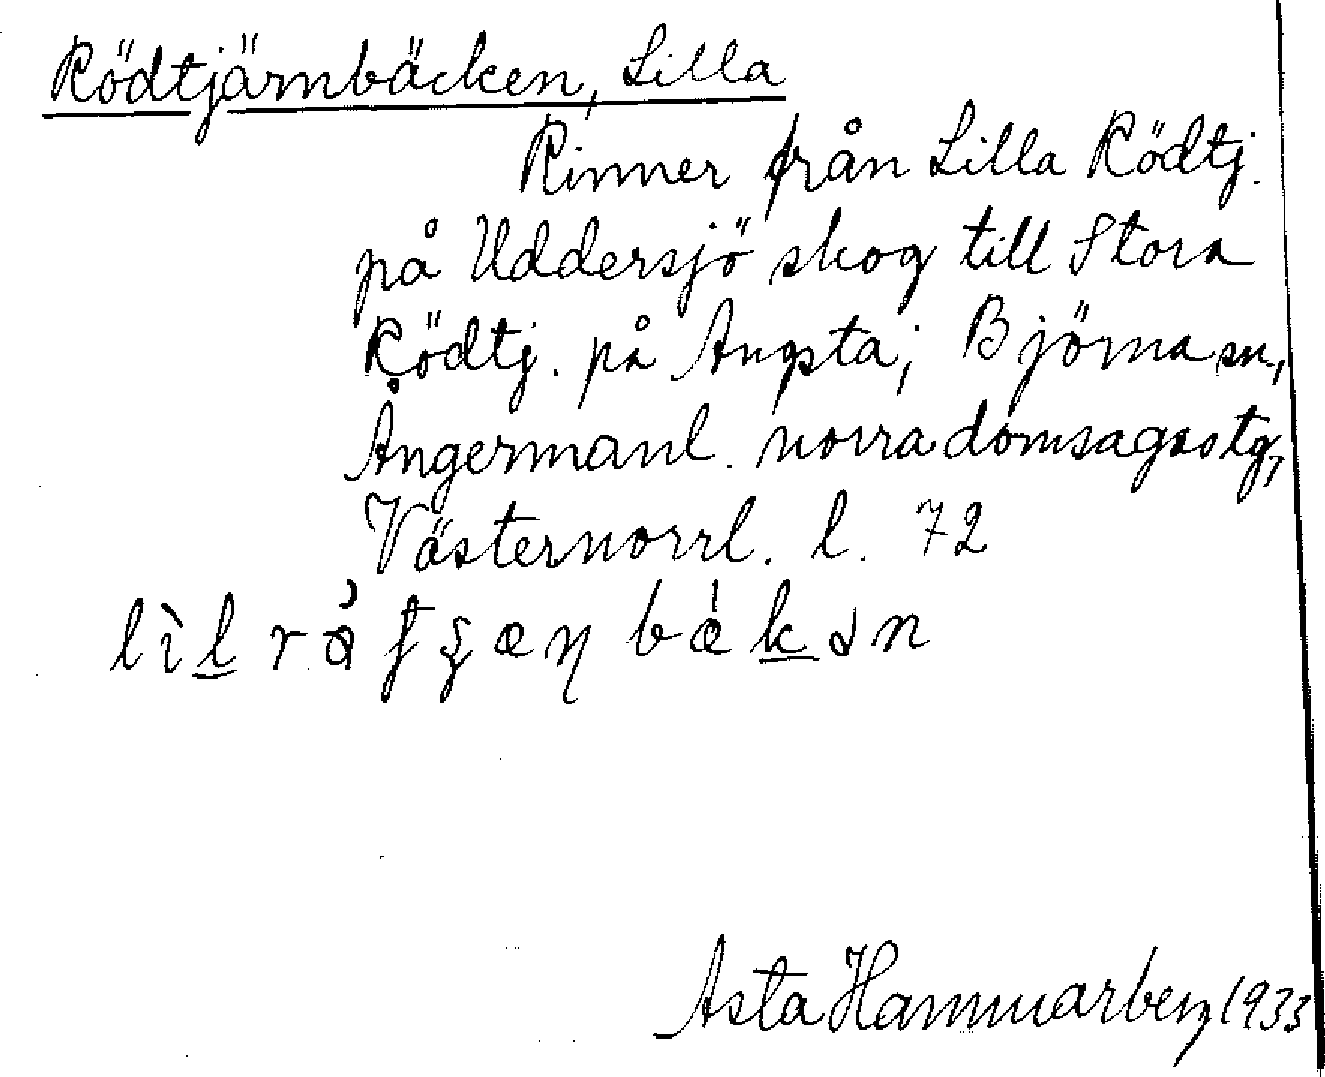 Rödtjärnbäcken, Lilla
Rinner från Lilla Rödtj.
på Uddersjö skog till Stora
Rödtj. på Angsta; Björna sn,
Ångermanl. norra domsagastg,
Västernorrl. l. 72
Asta Hammarberg 1933